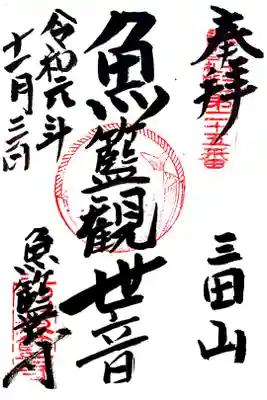 奉拝
三田山
魚籃観世音
令和六年
十一月三日
魚籃寺
第二十五番